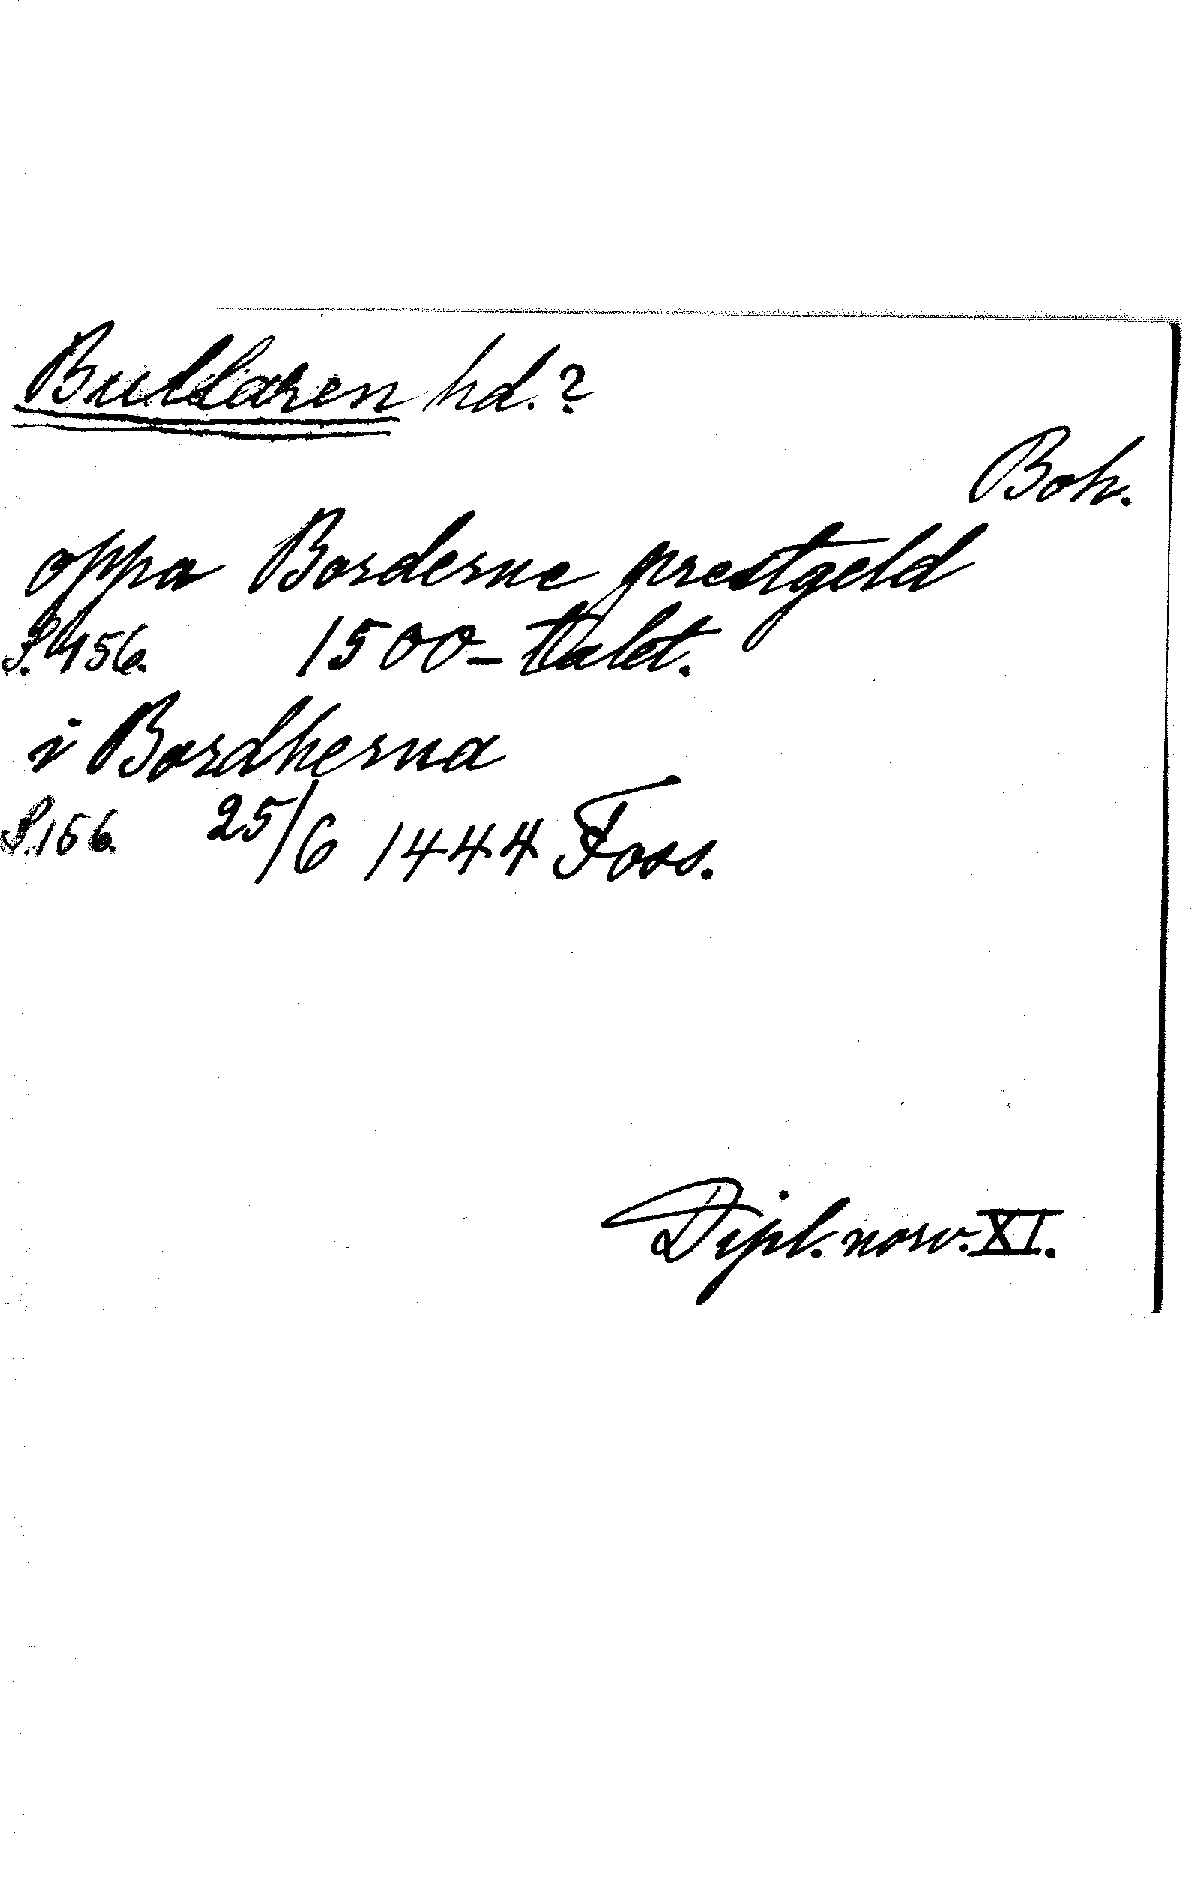 Bullaren hd.?
Boh.
oppa Borderne prestgeld
S. 456. 1500-talet.
i Bordherna
S. 156. 25/6 1444 Foss.
Dipl. norv. XI.